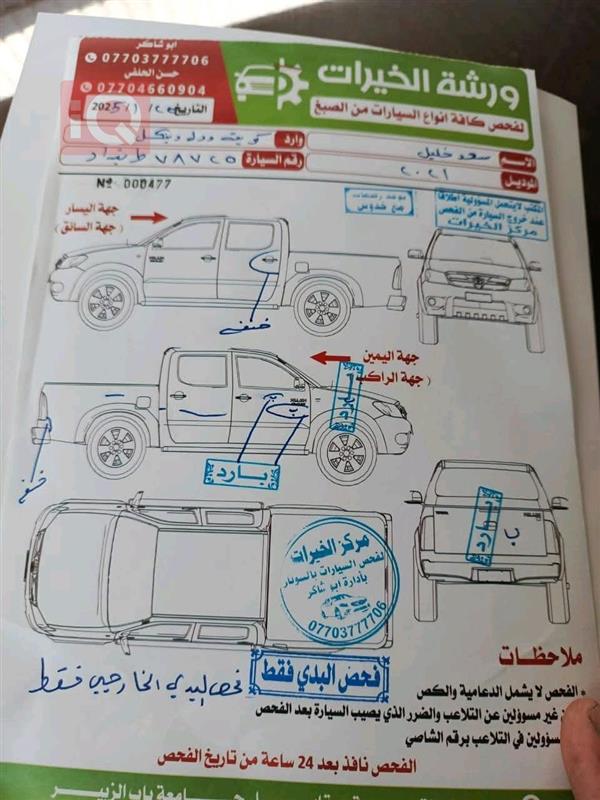 ورشة الخيرات
لفحص كافة انواع السيارات من الصبغ
ابو شاكر
07703777706
حسن الحلفي
07704660904
التاريخ / / 2025
iQ
الاسم سعد خليل وارد
الموديل ٢٠٢١ رقم السيارة ٧٨٧٢٥
Nº 000477
مع خدوش
المكتب لايتحمل المسؤولية اطلاقا
عند خروج السيارة من الفحص
مركز الخيرات
جهة اليسار
(جهة السائق)
جهة اليمين
(جهة الراكب
HILUX
بارد
ب
بارد
ب
بارد
مركز الخيرات
لفحص السيارات بالسونار
بأدارة ابو شاكر
07703777706
فحص البدي فقط
فحص البدي الخارجي فقط
ملاحظات
* الفحص لا يشمل الدعامية والكص
غير مسوؤلين عن التلاعب والضرر الذي يصيب السيارة بعد الفحص
مسؤولين في التلاعب برقم الشاصي
الفحص نافذ بعد 24 ساعة من تاريخ الفحص